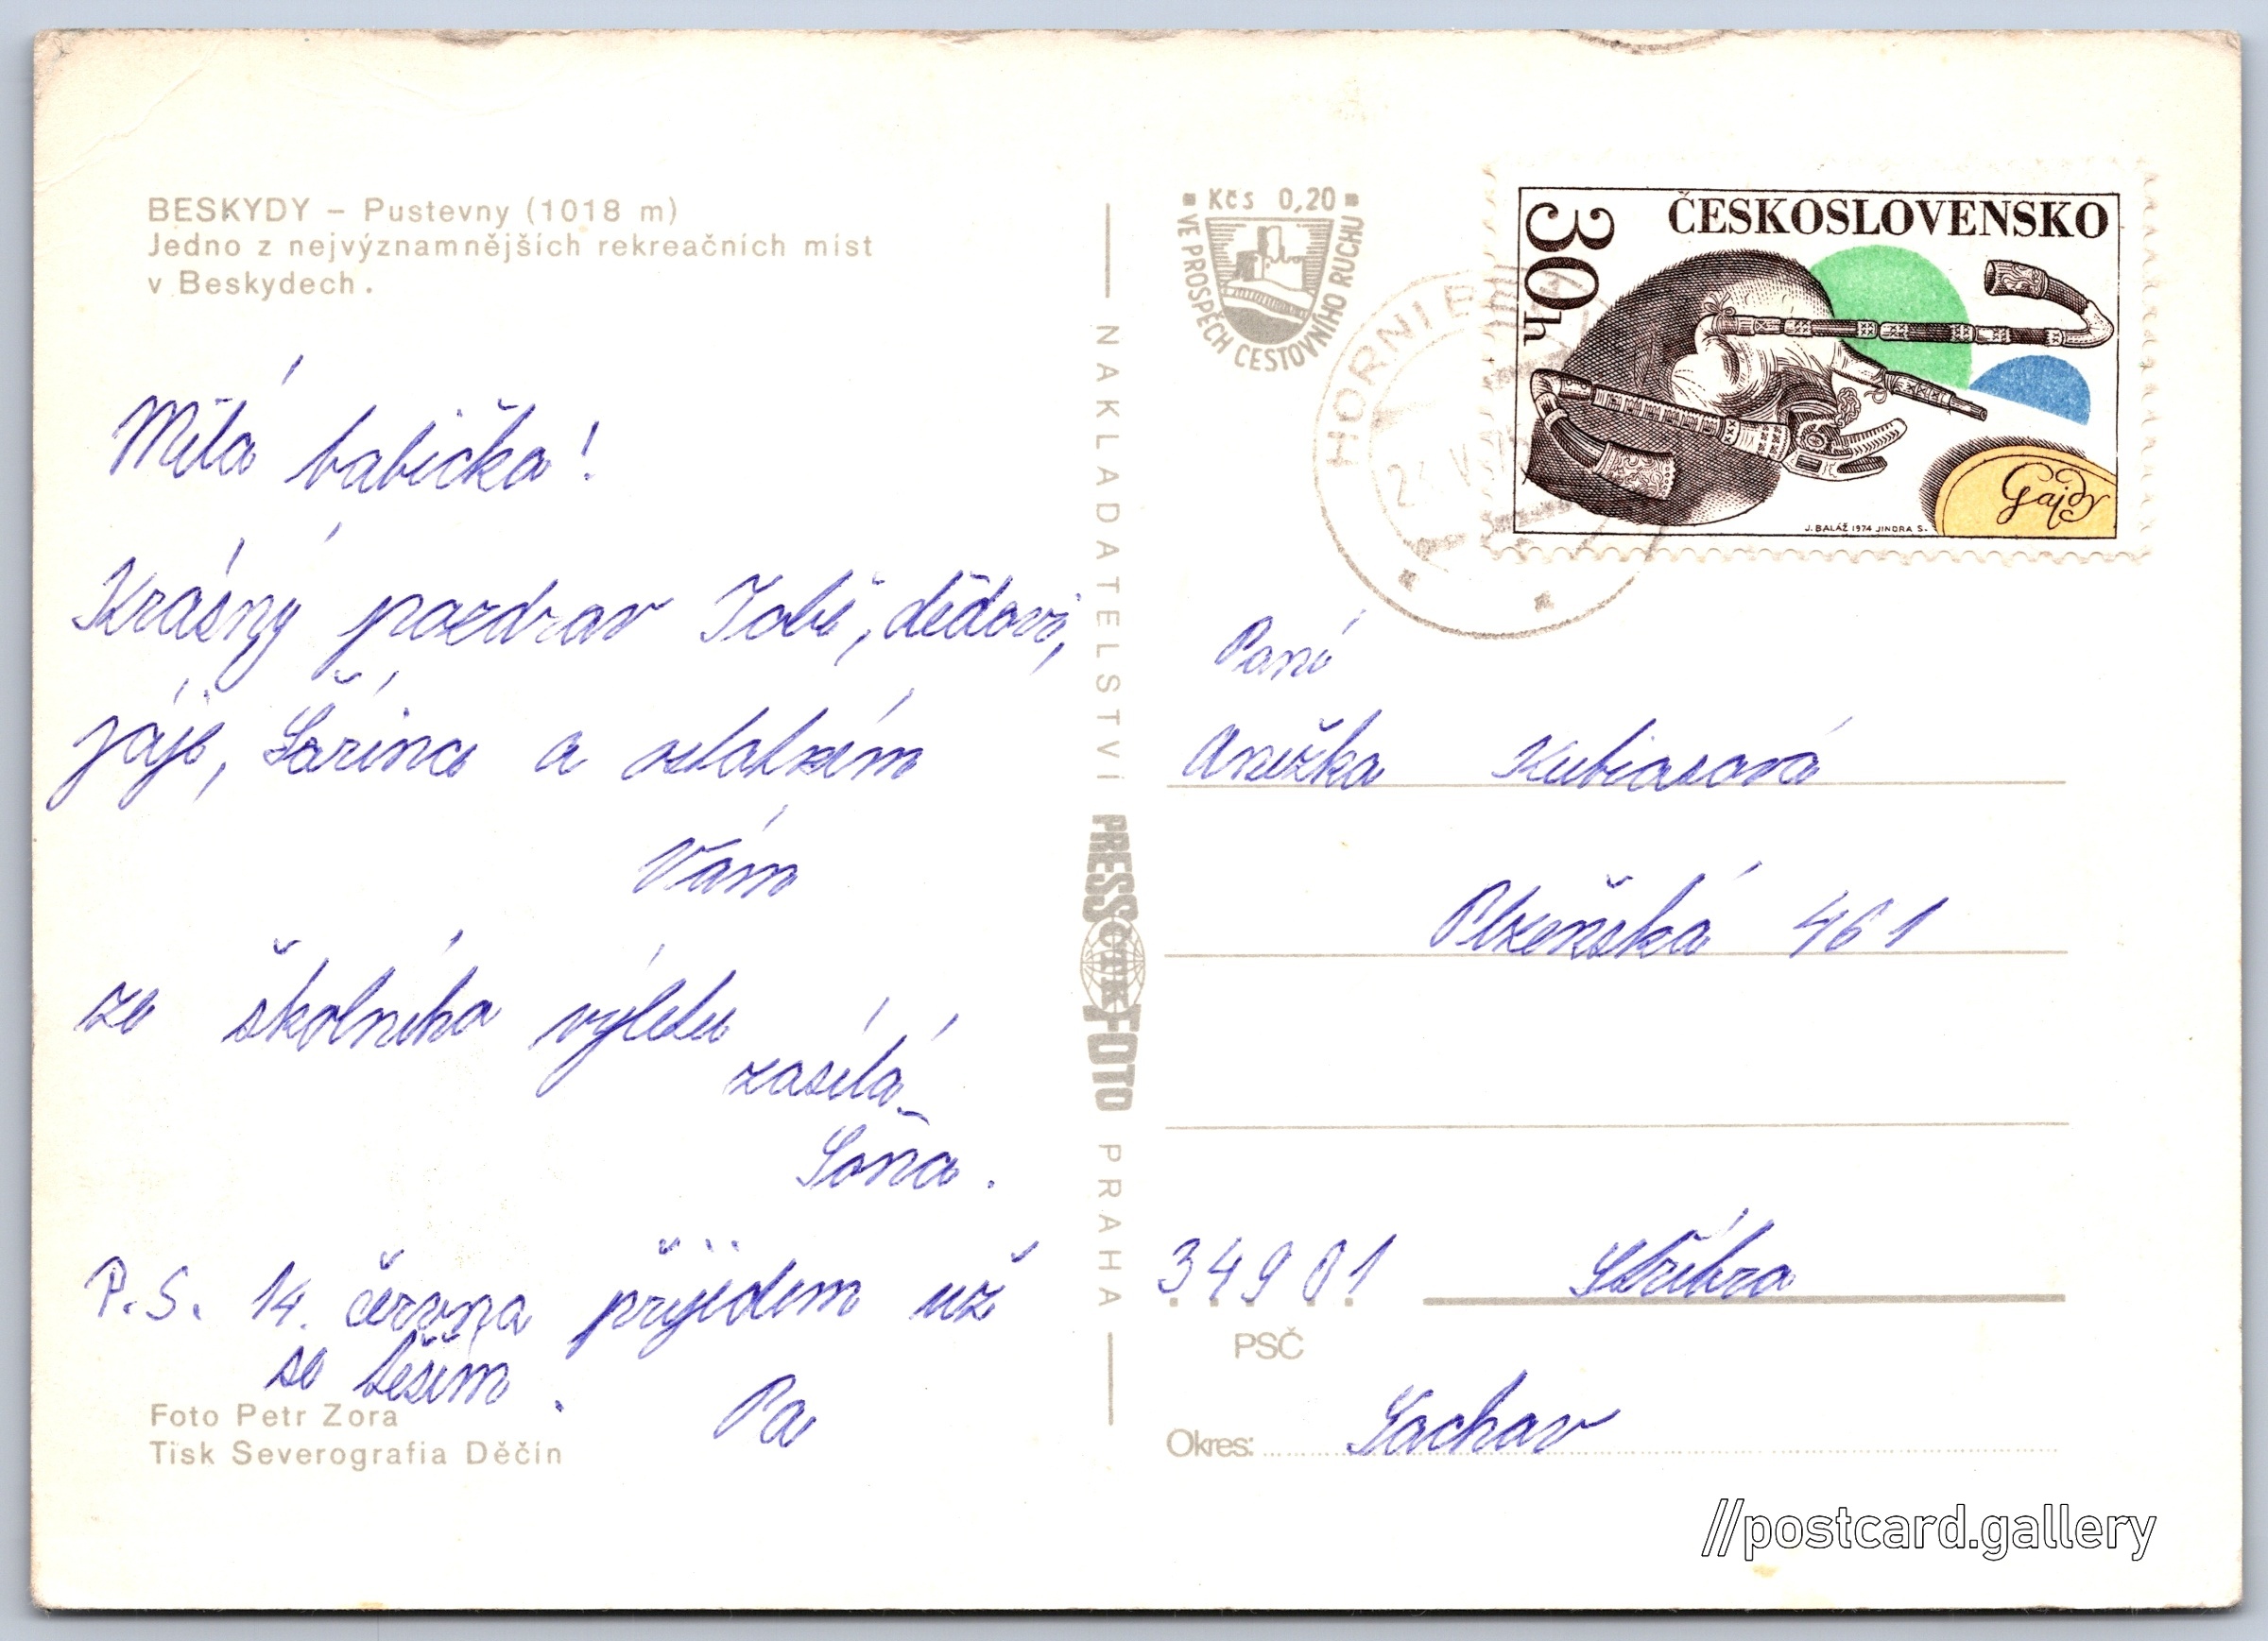 BESKYDY – Pustevny (1018 m)
Jedno z nejvýznamnějších rekreačních míst
v Beskydech.
Milá babička!
Krásný pozdrav Tobě, dědovi,
jáje, Šárince a ostatním
Vám
ze školního výletu
zasílá
Soňa.
P.S. 14. června přijedem už
se těším.
Pa
Foto Petr Zora
Tisk Severografia Děčín
NAKLADATELSTVÍ PRESSFOTO PRAHA
ČTK
Kčs 0,20
VE PROSPĚCH CESTOVNÍHO RUCHU
HORNÍ B
ČESKOSLOVENSKO
30h
Gajdy
J. BALÁŽ 1974 JINDRA S.
Paní
Anežka Kubiasová
Plzeňská 461
34901 Stříbro
PSČ
Okres: Tachov
//postcard.gallery